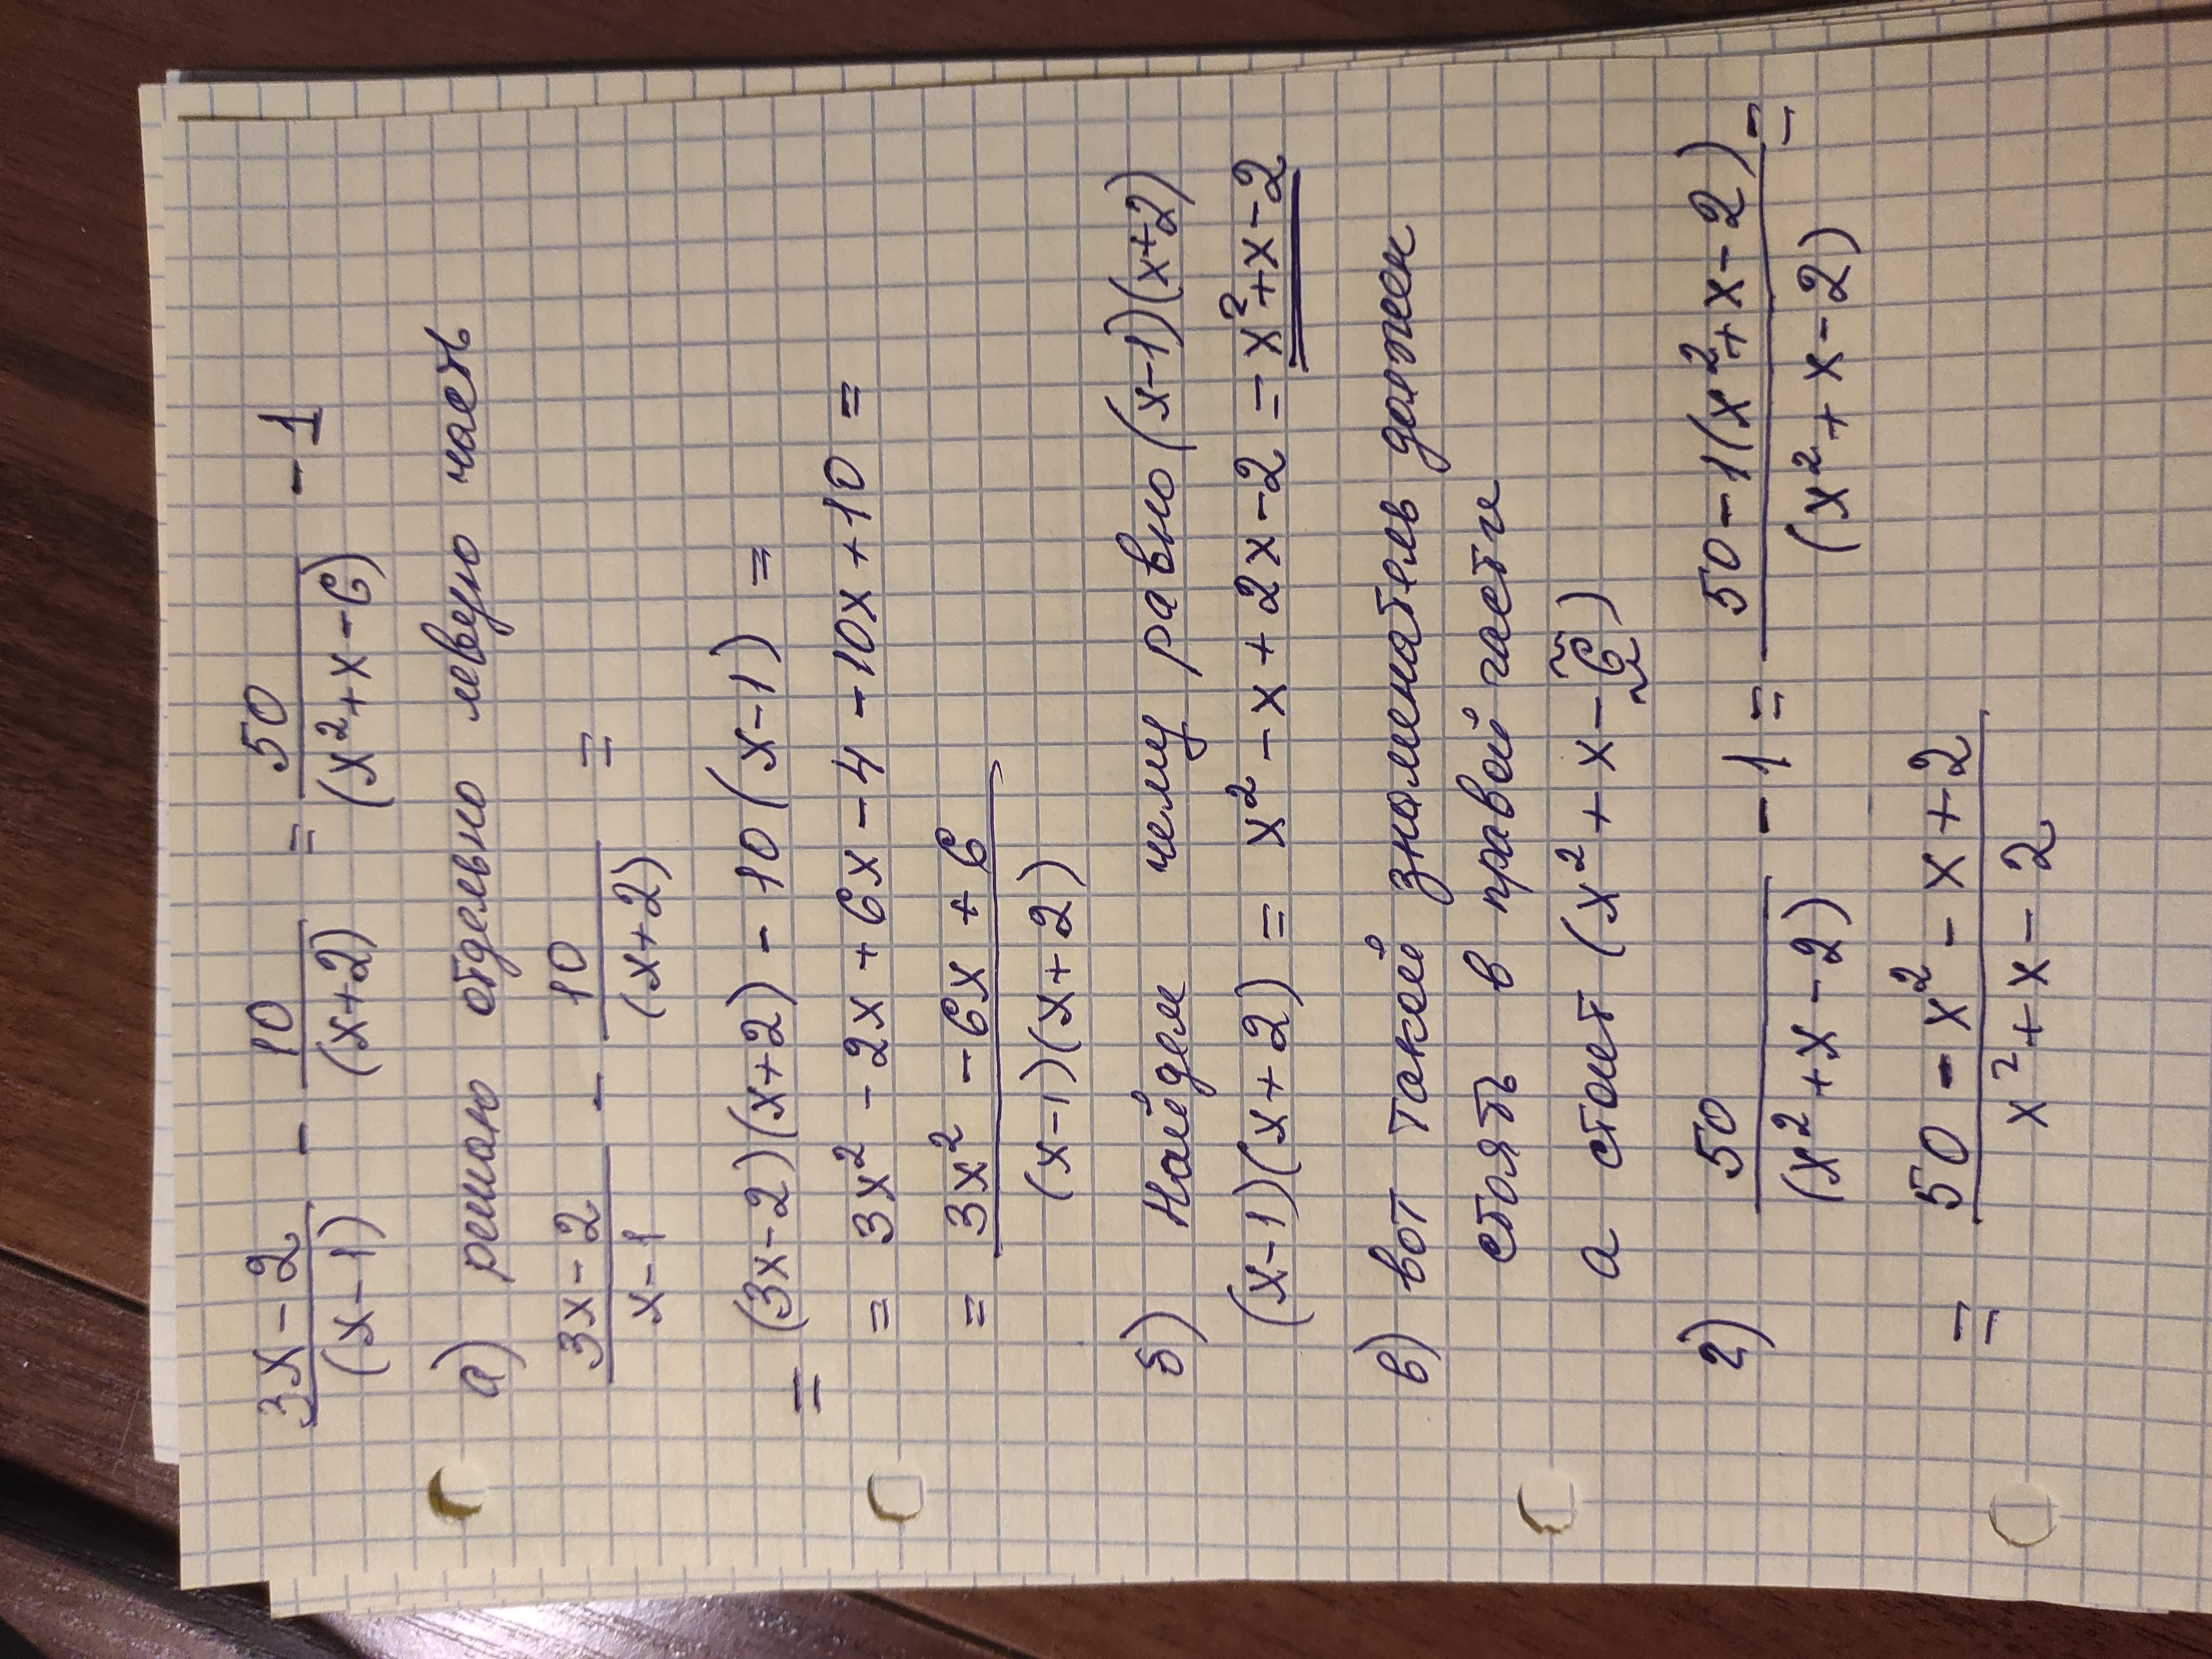 3x-2/(x-1) - 10/(x+2) = 50/(x²+x-6) - 1
а) решаю отдельно левую часть
3x-2/x-1 - 10/(x+2) =
= (3x-2)(x+2) - 10(x-1) =
= 3x² - 2x + 6x - 4 - 10x + 10 =
= 3x² - 6x + 6/(x-1)(x+2)
б) Найдем чему равно (x-1)(x+2)
(x-1)(x+2) = x² - x + 2x - 2 = x²+x-2
в) вот такой знаменатель должен
стоять в правой части
а стоит (x² + x - 6)
г) 50/(x²+x-2) - 1 = 50-1(x²+x-2)/(x²+x-2) =
= 50-x²-x+2/x²+x-2